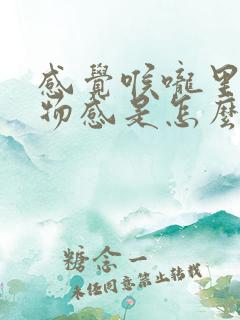 感覺喉嚨里
物感是怎麼
糖念一
未经同意禁止转载